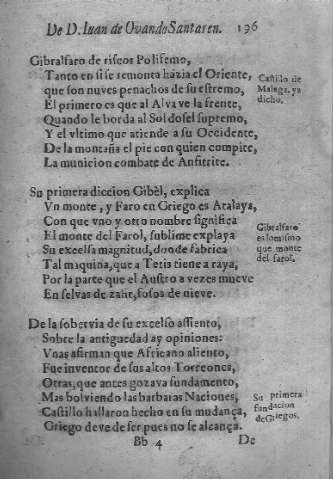 De D. Iuan de Ovando Santaren. 196
Gibralfaro de riscos Polifemo,
Tanto en si se remonta házia el Oriente,
que son nuves penachos de su estremo,
El primero es que al Alva ve la frente,
Quando le borda al Sol dosel supremo,
Y el vltimo que atiende a su Occidente,
De la montaña el pie con quien compite,
La municion combate de Anfitrite.
Castillo de
Malaga, ya
dicho.
Su primera diccion Gibèl, explica
Vn monte, y Faro en Griego es Atalaya,
Con que vno y otro nombre significa
El monte del Farol, sublime explaya
Su excelsa magnitud, donde fabrica
Tal maquina, que a Tetis tiene a raya,
Por la parte que el Austro a vezes mueve
En selvas de zafir, fosos de nieve.
Gibralfaro
es lo mismo
que monte
del farol.
De la sobervia de su excelso assiento,
Sobre la antiguedad ay opiniones:
Vnas afirman que Africano aliento,
Fue inventor de sus altos Torreones,
Otras, que antes gozava fundamento,
Mas bolviendo las barbaras Naciones,
Castillo hallaron hecho en su mudança,
Griego deve de ser pues no se alcança.
Su primera
fundacion
de Griegos.
Bb 4 De